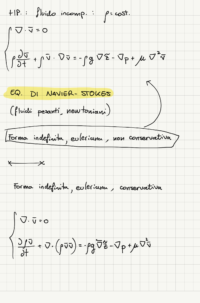 +IP: fluido incomp.: ρ=cost.
∇·v̄=0
ρ ∂v̄/∂t + ρ v̄·∇v̄ = -ρg∇z - ∇p + μ∇²v̄
EQ. DI NAVIER-STOKES
(fluidi pesanti, newtoniani)
Forma indefinita, euleriana, non conservativa
Forma indefinita, euleriana, conservativa
∇·v̄=0
∂ρv̄/∂t + ∇·(ρv̄v̄) = -ρg∇z - ∇p + μ∇²v̄